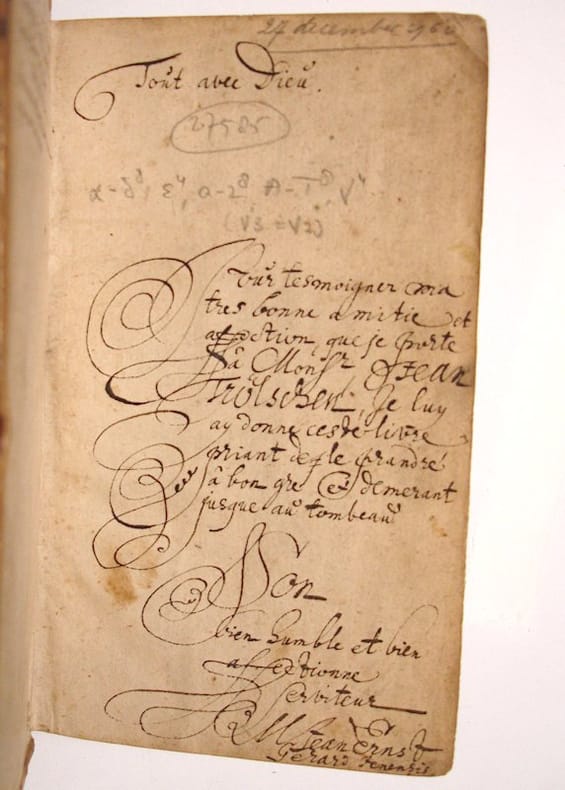 27 december 1960
Tout avec Dieu.
27585
α-δ⁸, ε⁴, a-z⁸ A-T⁸, V⁴
(V3 = V2)
Pour tesmoigner ma
tres bonne amitie et
affection, que je porte
à Monsr Jean
Trölschen, Je luy
ay donne ceste livre
priant de le prandre
à bon gre et demerant
jusque au tombeau
Son
bien humble et bien
affectionne
Serviteur
M Jean Ernst
Gerard Jenensis